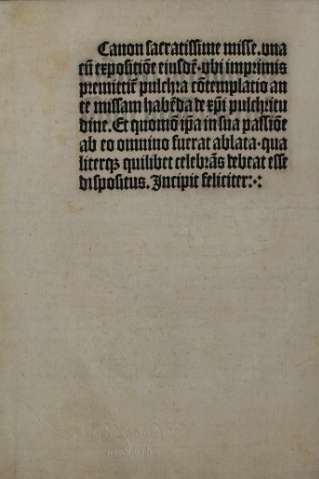 Canon sacratissime misse. vna
cū expositiōe eiusdē· vbi imprimis
premittit᷑ pulchra cōtemplatio an
te missam habēda de xp̄i pulchritu
dine. Et quomō ip̄a in sua passiōe
ab eo omnino fuerat ablata· qua
literqꝫ quilibet celebrās debeat esse
dispositus. Incipit feliciter:·: